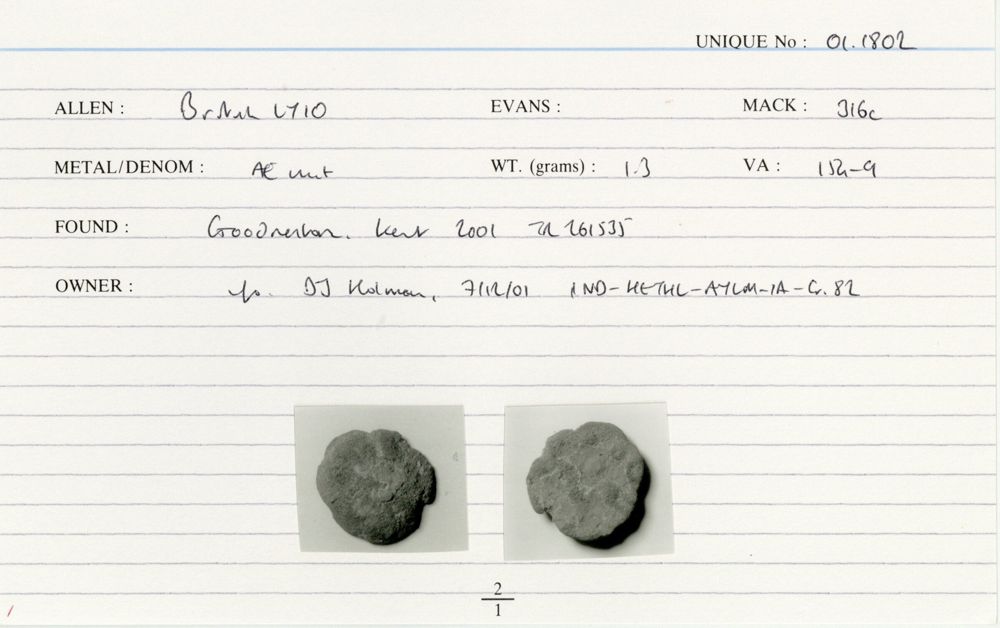 UNIQUE No : 01.1802
ALLEN : British LY10 EVANS : MACK : 316c
METAL/DENOM : AE unit WT. (grams) : 1.3 VA : 154-9
FOUND : Goodnestone, Kent 2001 TR 261535
OWNER : DJ Holman, 7/12/01
2
1